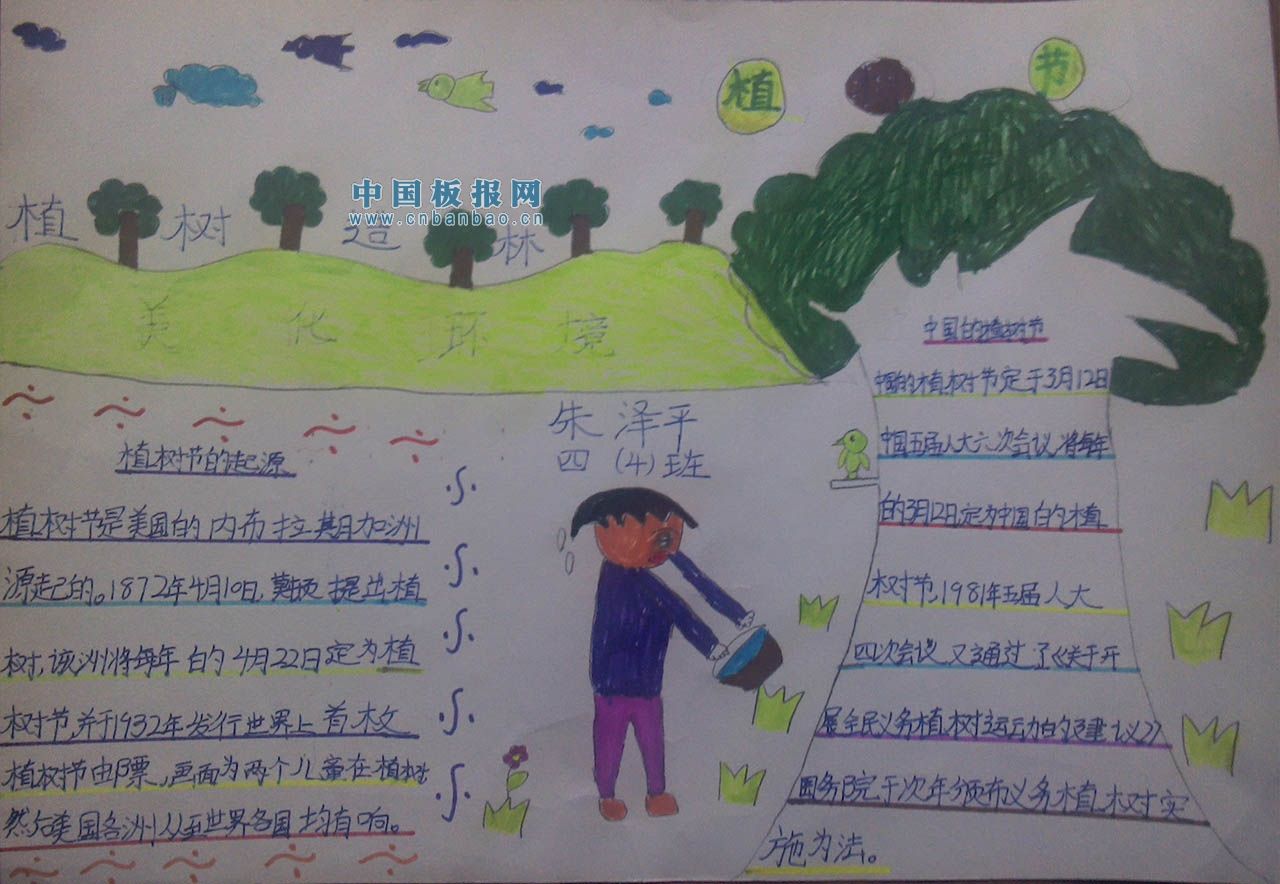 植 节
中国板报网
www.cnbanbao.cn
植 树 造 林
美 化 环 境
朱泽平
四(4)班
植树节的起源
植树节是美国的内布拉其斯加洲
源起己的。1872年4月10日,莫顿提出植
树,该洲将每年的4月22日定为植
树节,并于1932年发行世界上首枚
植树节邮票,画面为两个儿童在植树
然后美国各洲从至世界各国均有响。
中国的植树节
中国的植树节定于3月12日
中国五届人大六次会议,将每年
的3月12日定为中国的植
树节,1981年五届人大
四次会议又通过了《关于开
展全民义务植树运动的建议》
国务院于次年颁布义务植树实
施为法。